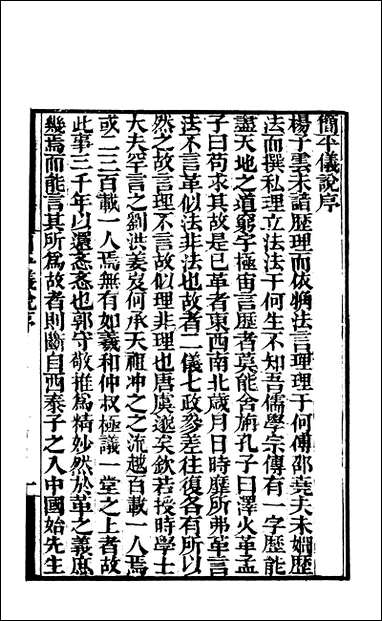 簡平儀說序
楊子雲未諳歷理而依㨾法言理理于何傅邵堯夫未嫺歷
法而撰私理立法法于何生不知吾儒學宗傳有一字歷能
盡天地之道窮宇極宙言歷者莫能舍旃孔子曰澤火革孟
子曰苟求其故是已革者東西南北歲月日時靡所弗革言
法不言革似法非法也故者二儀七政參差往復各有所以
然之故言理不言故似理非理也唐虞邃矣欽若授時學士
大夫罕言之劉洪姜岌何承天祖冲之之流越百載一人焉
或二三百載一人焉無有如羲和仲叔極議一堂之上者故
此事三千年以還忞忞也郭守敬推為精妙然於革之義庶
幾焉而能言其所為故者則斷自西泰子之入中國始先生
簡平儀說序 一